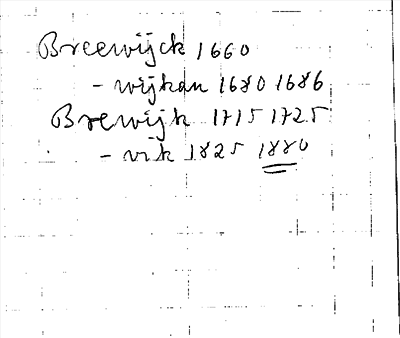 Breewijck 1660
- wijkan 1680 1686
Brewijk 1715 1725
- vik 1825 1880